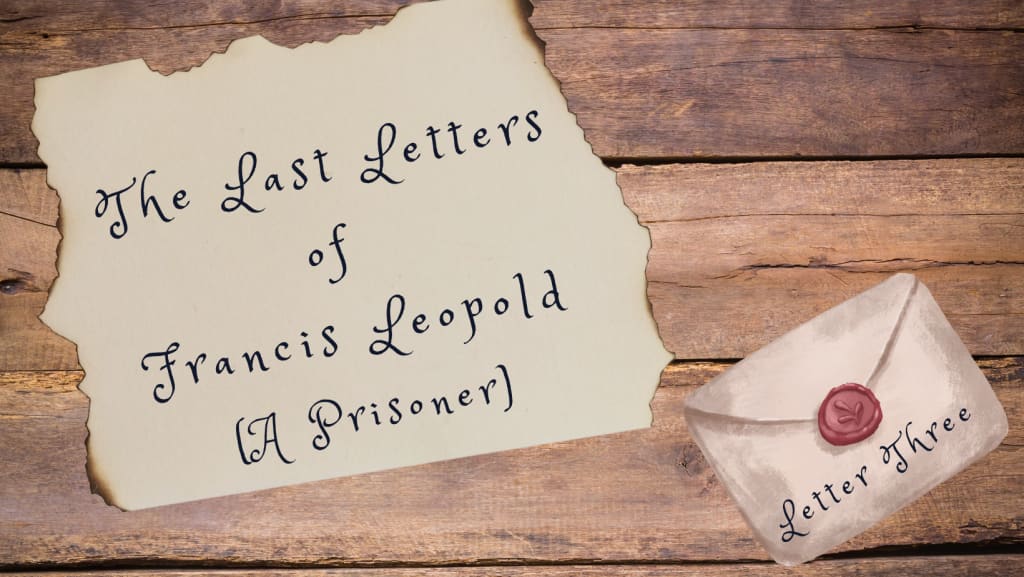 The Last Letters
of
Francis Leopold
(A Prisoner)
Letter Three